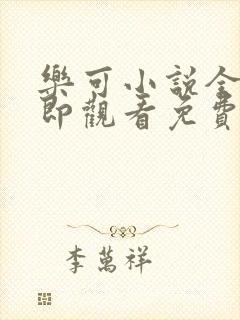 樂可小說全
即觀看免費
李萬祥